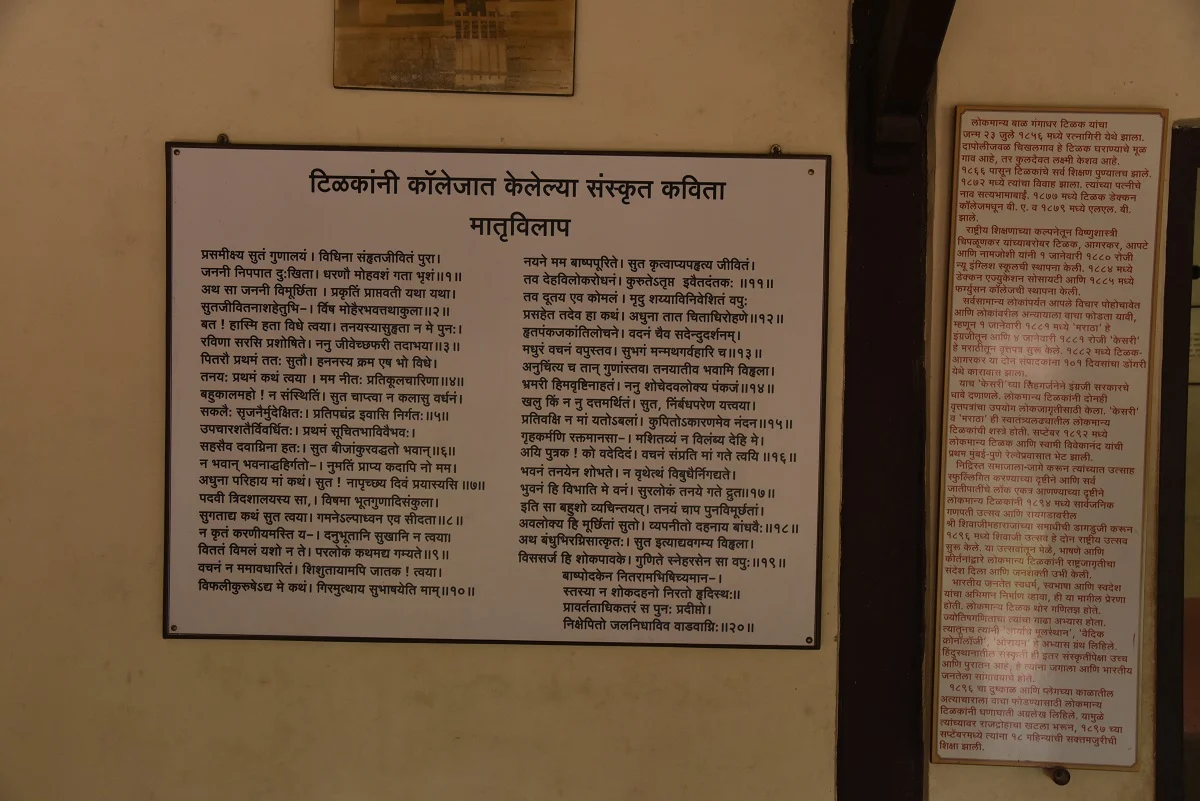 टिळकांनी कॉलेजात केलेल्या संस्कृत कविता
मातृविलाप
प्रसमीक्ष्य सुतं गुणालयं। विधिना संहृतजीवितं पुरा।
जननी निपपात दुःखिता। धरणौ मोहवशं गता भृशं॥१॥
अथ सा जननी विमूर्छिता । प्रकृतिं प्राप्तवती यथा यथा।
सुतजीवितनाशहेतुभि–। र्विष मोहैरभवत्तथाकुला॥२॥
बत ! हास्मि हता विधे त्वया। तनयस्यासुहृता न मे पुनः।
रविणा सरसि प्रशोषिते। ननु जीवेच्छफरी तदाभया॥३॥
पितरौ प्रथमं ततः सुतौ। हननस्य क्रम एष भो विधे।
तनयः प्रथमं कथं त्वया । मम नीतः प्रतिकूलचारिणा॥४॥
बहुकालमहो ! न संस्थितिं। सुत चाप्त्वा न कलासु वर्धनं।
सकलैः सृजनैर्मुदेक्षितः। प्रतिपच्चंद्र इवासि निर्गतः॥५॥
उपचारशतैर्विवर्धितः। प्रथमं सूचितभाविवैभवः।
सहसैव दवाग्निना हतः। सुत बीजांकुरवद्धतो भवान्॥६॥
न भवान् भवनाद्बहिर्गतो–। नुमतिं प्राप्य कदापि नो मम।
अधुना परिहाय मां कथं। सुत ! नापृच्छ्य दिवं प्रयास्यसि ॥७॥
पदवी त्रिदशालयस्य सा,। विषमा भूतगुणादिसंकुला।
सुगताद्य कथं सुत त्वया। गमनेऽल्पाध्वन एव सीदता॥८॥
न कृतं करणीयमस्ति य–। दनुभूतानि सुखानि न त्वया।
विततं विमलं यशो न ते। परलोकं कथमद्य गम्यते॥९॥
वचनं न ममावधारितं। शिशुतायामपि जातक ! त्वया।
विफलीकुरुषेऽद्य मे कथं। गिरमुत्थाय सुभाषयेति माम्॥१०॥
नयने मम बाष्पपूरिते। सुत कृत्वाप्यपहृत्य जीवितं।
तव देहविलोकरोधनं। कुरुतेऽतृप्त इवैतदंतकः ॥११॥
तव दूतय एव कोमलं। मृदु शय्याविनिवेशितं वपुः
प्रसहेत तदेव हा कथं। अधुना तात चिताधिरोहणे॥१२॥
हृतपंकजकांतिलोचने। वदनं चैव सदेन्दुदर्शनम्।
मधुरं वचनं वपुस्तव। सुभगं मन्मथगर्वहारि च॥१३॥
अनुचिंत्य च तान् गुणांस्तवा। तनयातीव भवामि विह्वला।
भ्रमरी हिमवृष्टिनाहतं। ननु शोचेदवलोक्य पंकजं॥१४॥
खलु किं न नु दत्तमर्थितं। सुत, निर्बंधपरेण यत्त्वया।
प्रतिवक्षि न मां यतोऽबलां। कुपितोऽकारणमेव नंदन॥१५॥
गृहकर्मणि रक्तमानसा–। मशितव्यं न विलंब्य देहि मे।
अयि पुत्रक ! को वदेदिवं। वचनं संप्रति मां गते त्वयि ॥१६॥
भवनं तनयेन शोभते। न वृथेत्थं विबुधैर्निगद्यते।
भुवनं हि विभाति मे वनं। सुरलोकं तनये गते द्रुत॥१७॥
इति सा बहुशो व्यचिन्तयत्। तनयं चाप पुनर्विमूर्छतां।
अवलोक्य हि मूर्छितां सुतो। व्यपनीतो दहनाय बांधवैः॥१८॥
अथ बंधुभिरग्निसात्कृतः। सुत इत्याद्यवगम्य विह्वला।
विससर्ज हि शोकपावके। गुणिते स्नेहरसेन सा वपुः॥१९॥
बाष्पोदकेन नितरामभिषिच्यमान–।
स्तस्या न शोकदहनो निरतो हृदिस्थः॥
प्रावर्तताधिकतरं स पुनः प्रदीप्तो।
निक्षेपितो जलनिधाविव वाडवाग्निः॥२०॥
लोकमान्य बाळ गंगाधर टिळक यांचा
जन्म २३ जुलै १८५६ मध्ये रत्नागिरी येथे झाला.
दापोलीजवळ चिखलगाव हे टिळक घराण्याचे मूळ
गाव आहे, तर कुलदैवत लक्ष्मी केशव आहे.
१८६६ पासून टिळकांचे सर्व शिक्षण पुण्यातच झाले.
१८७२ मध्ये त्यांचा विवाह झाला. त्यांच्या पत्नीचे
नाव सत्यभामाबाई. १८७७ मध्ये टिळक डेक्कन
कॉलेजमधून बी. ए. व १८७९ मध्ये एलएल. बी.
झाले.
राष्ट्रीय शिक्षणाच्या कल्पनेतून विष्णुशास्त्री
चिपळूणकर यांच्याबरोबर टिळक, आगरकर, आपटे
आणि नामजोशी यांनी १ जानेवारी १८८० रोजी
न्यू इंग्लिश स्कूलची स्थापना केली. १८८४ मध्ये
डेक्कन एज्युकेशन सोसायटी आणि १८८५ मध्ये
फर्ग्युसन कॉलेजची स्थापना केली.
सर्वसामान्य लोकांपर्यंत आपले विचार पोहोचावेत
आणि लोकांवरील अन्यायाला वाचा फोडता यावी,
म्हणून १ जानेवारी १८८१ मध्ये 'मराठा' हे
इंग्रजीतून आणि ४ जानेवारी १८८१ रोजी 'केसरी'
हे मराठीतून वृत्तपत्र सुरू केले. १८८२ मध्ये टिळक-
आगरकर या दोन संपादकांना १०१ दिवसांचा डोंगरी
येथे कारावास झाला.
याच 'केसरी'च्या सिंहगर्जनेने इंग्रजी सरकारचे
धाबे दणाणले. लोकमान्य टिळकांनी दोनही
वृत्तपत्रांचा उपयोग लोकजागृतीसाठी केला. 'केसरी'
व 'मराठा' ही स्वातंत्र्यलढ्यातील लोकमान्य
टिळकांची शस्त्रे होती. सप्टेंबर १८९२ मध्ये
लोकमान्य टिळक आणि स्वामी विवेकानंद यांची
प्रथम मुंबई-पुणे रेल्वेप्रवासात भेट झाली.
निद्रिस्त समाजाला-जागे करून त्यांच्यात उत्साह
स्फुल्लिंगित करण्याच्या दृष्टीने आणि सर्व
जातीपातींचे लोक एकत्र आणण्याच्या दृष्टीने
लोकमान्य टिळकांनी १८९४ मध्ये सार्वजनिक
गणपती उत्सव आणि रायगडावरील
श्री शिवाजीमहाराजांच्या समाधीची डागडुजी करून
१८९६ मध्ये शिवाजी उत्सव हे दोन राष्ट्रीय उत्सव
सुरू केले. या उत्सवातून मेळे, भाषणे आणि
कीर्तनांद्वारे लोकमान्य टिळकांनी राष्ट्रजागृतीचा
संदेश दिला आणि जनशक्ती उभी केली.
भारतीय जनतेत स्वधर्म, स्वभाषा आणि स्वदेश
यांचा अभिमान निर्माण व्हावा, ही या मागील प्रेरणा
होती. लोकमान्य टिळक थोर गणितज्ञ होते.
ज्योतिषगणिताचा त्यांचा गाढा अभ्यास होता.
त्यातूनच त्यांनी 'आर्यांचे मूलस्थान', 'वेदिक
क्रोनॉलॉजी', 'ओरायन' हे अभ्यास ग्रंथ लिहिले.
हिंदुस्थानातील संस्कृती ही इतर संस्कृतींपेक्षा उच्च
आणि पुरातन आहे, हे त्यांना जगाला आणि भारतीय
जनतेला सांगावयाचे होते.
१८९६ चा दुष्काळ आणि प्लेगच्या काळातील
अत्याचाराला वाचा फोडण्यासाठी लोकमान्य
टिळकांनी घणाघाती अग्रलेख लिहिले. यामुळे
त्यांच्यावर राजद्रोहाचा खटला भरून, १८९७ च्या
सप्टेंबरमध्ये त्यांना १८ महिन्यांची सक्तमजुरीची
शिक्षा झाली.